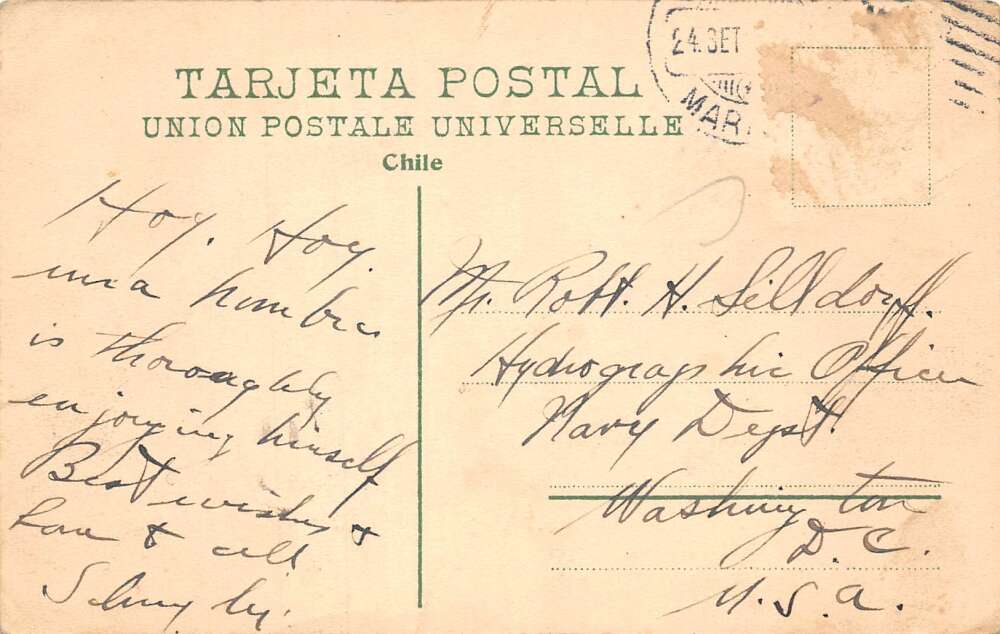 24. SET
MAR.
TARJETA POSTAL
UNION POSTALE UNIVERSELLE
Chile
Hoy. Hoy.
una hombre
is thoroughly
enjoying himself
Best wishes &
Love & all
Mr. Robt. H. Silldorff.
Hydrographic Office
Navy Dept.
Washington
D. C.
U. S. A.